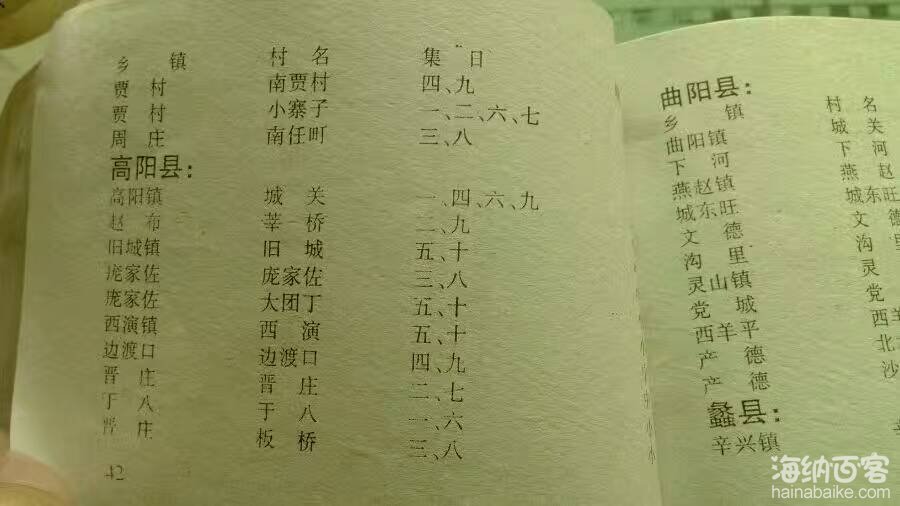 乡 镇 村 名 集 日
贾 村 南贾村 四、九
贾 村 小寨子 一、二、六、七
周 庄 南任町 三、八
高阳县：
高阳镇 城 关 一、四、六、九
赵 布 莘 桥 二、九
旧城镇 旧 城 五、十
庞家佐 庞家佐 三、八
庞家佐 大团丁 五、十
西演镇 西 演 五、十
边渡口 边渡口 四、九
晋 庄 晋 庄 二、七
于 八 于 八 一、六
晋 庄 板 桥 三、八
42
曲阳县：
乡 镇 村 名
曲阳镇 城 关
下 河 下 河
燕赵镇 燕 赵
城东旺 城东旺
文 德 文
沟 里 沟
灵山镇 灵
党 城 党
西羊平 西羊
产 德 北
产 德 沙
蠡县：
辛兴镇
海纳百客
hainabaike.com